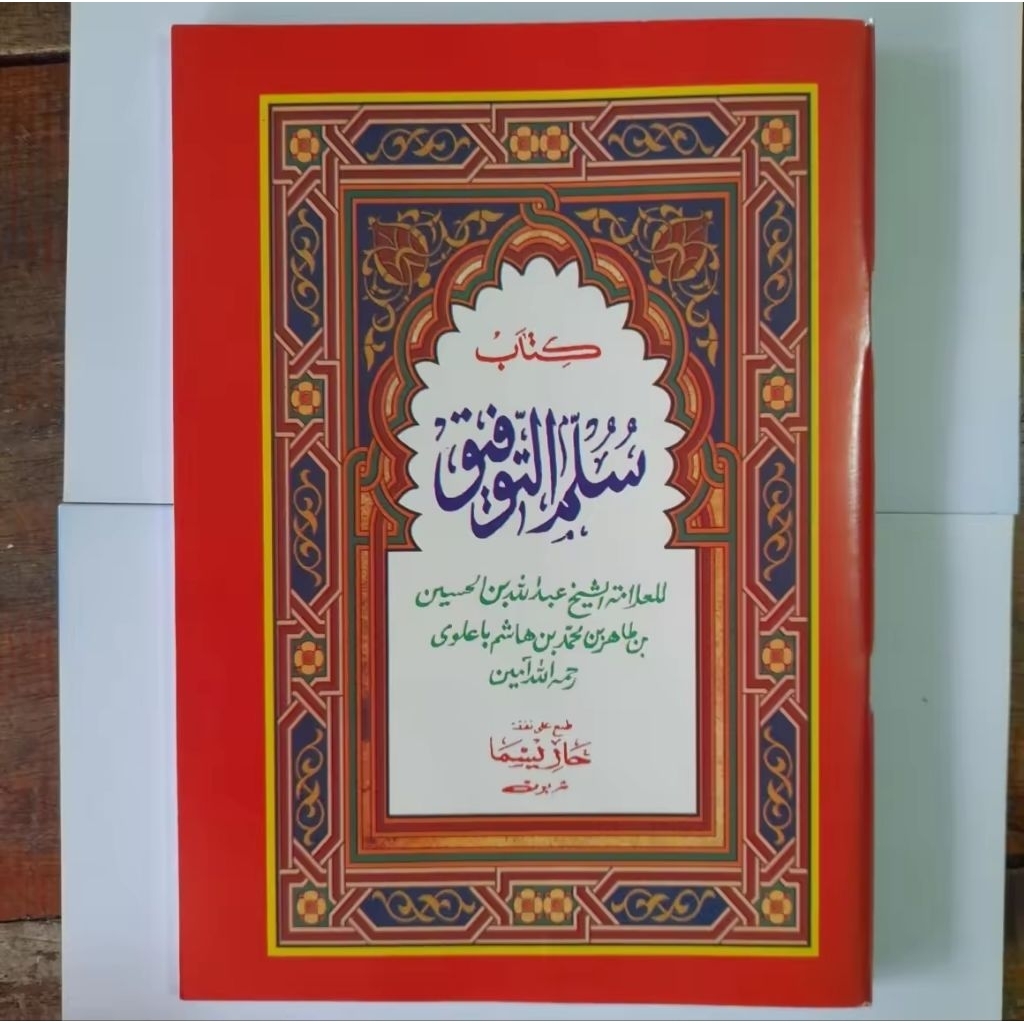 كِتَابُ
سُلَّمُ التَّوْفِيْقِ
للعلامة الشيخ عبد الله بن الحسين
بن طاهر بن محمّد بن هاشم باعلوى
رحمه الله آمين
طبع على نفقة